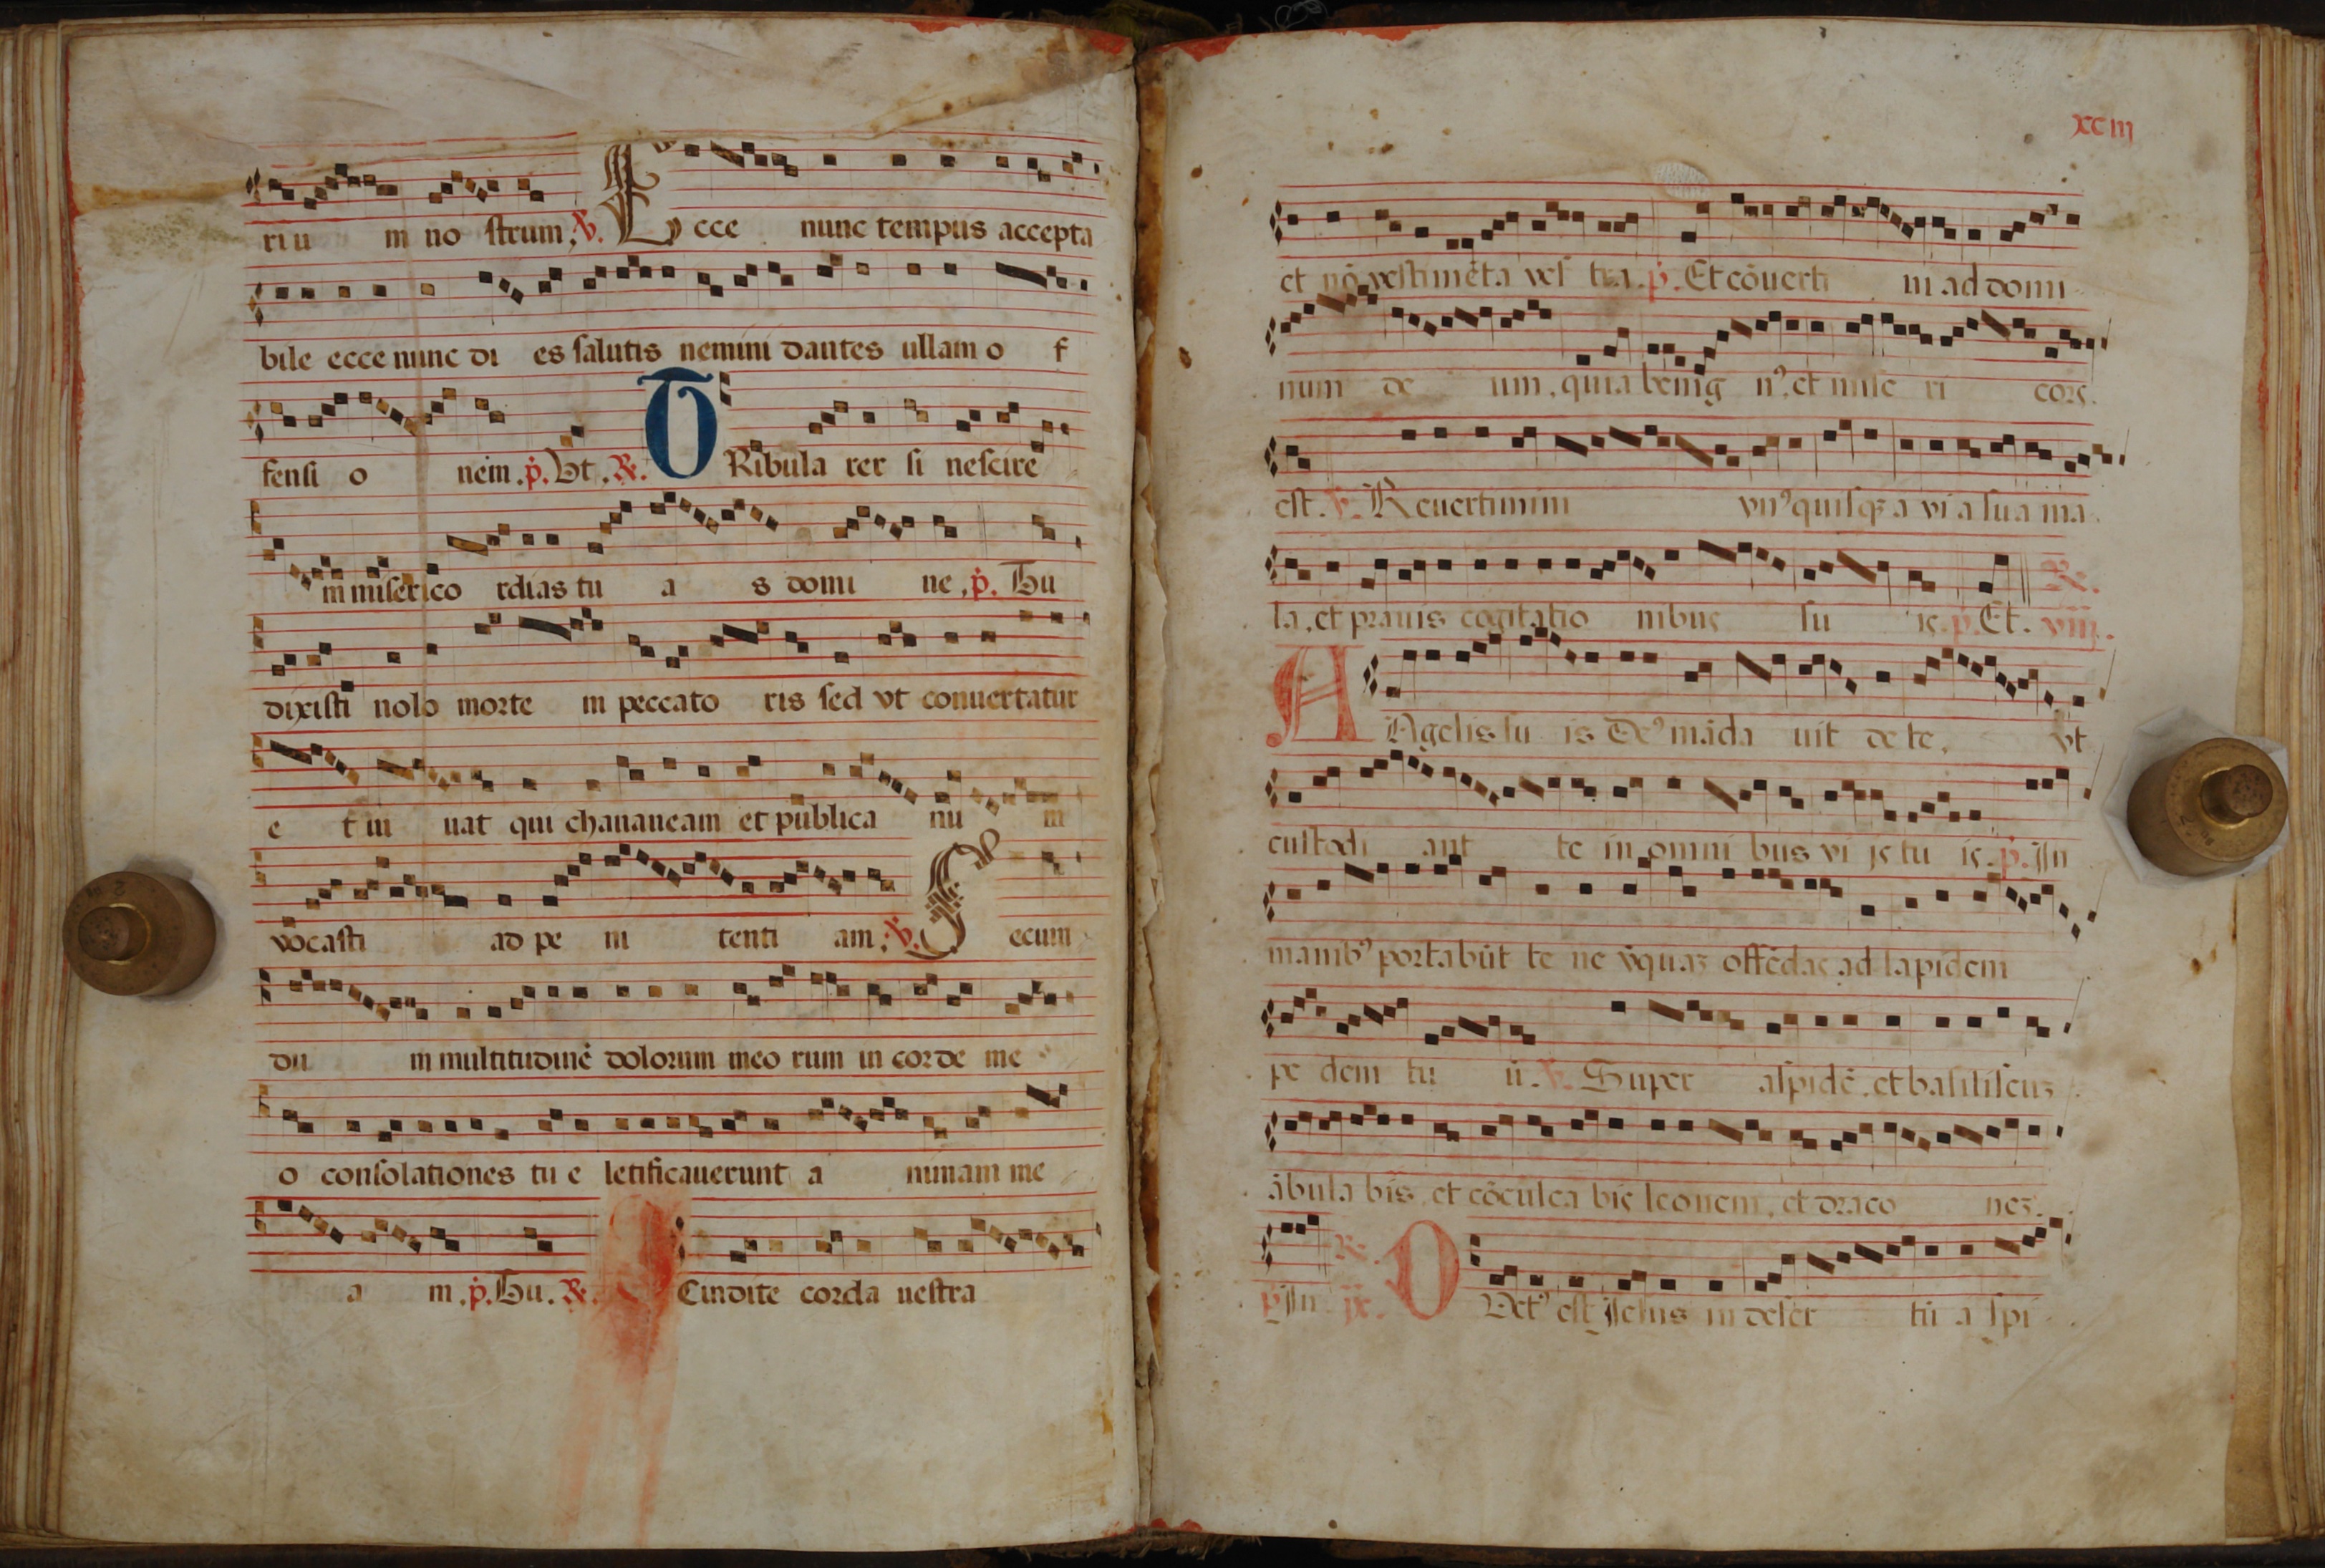 riu m no ſtrum, ℣. Ecce nunc tempus accepta
bile ecce nunc di es ſalutis nemini dantes ullam o f
fenſi o nem. p̄. Vt. ℟. TRibula rer ſi neſcire
m miſerico rdias tu a s domi ne, p̄. Hu
dixiſti nolo morte m peccato ris ſed vt conuertatur
e t ui uat qui chananeam et publica nu m
vocaſti ad pe ni tenti am, ℣. Secum
du m multitudinē dolorum meo rum in corde me
o conſolationes tu e letificauerunt a nimam me
a m. p̄. Hu. ℟. Cindite corda ueſtra
xciii
et nō veſtimēta veſ tra. p̄. Et cōuerti ni ad domi
num de um, quia benig nꝰ, et miſe ri cors.
eſt. ℣. Reuertimini vnꝰquiſqꝫ a via ſua ma
la, et prauis cogitatio nibus ſu is. p̄. Et. viij.
ANgelis ſu is Deꝰ māda uit de te, vt
cuſtodi ant te in omni bus vi is tu is. p̄. In
manibꝰ portabūt te ne vquaꝫ offēdas ad lapidem
pe dem tu ū. ℣. Super aſpidē, et baſiliſcuꝫ
ābula bis, et cōculca bis leonem, et draco neꝫ.
p̄. In ℟. ix. DUctꝰ eſt Jeſus in deſer tū a ſpi